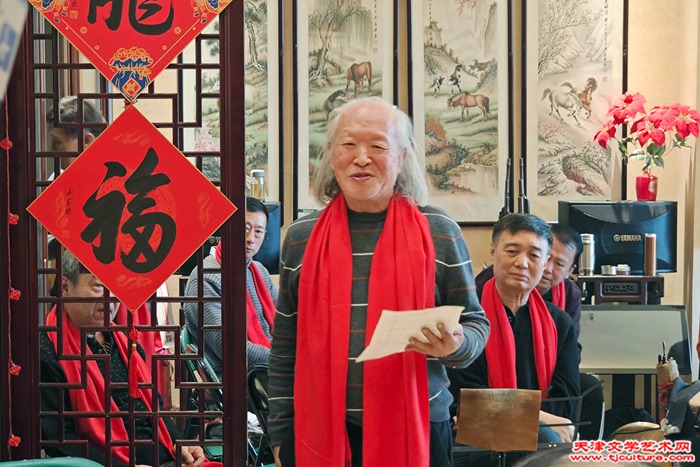 龍
福
YAMAHA
YAMAHA
天津文学艺术网
www.tjculture.com